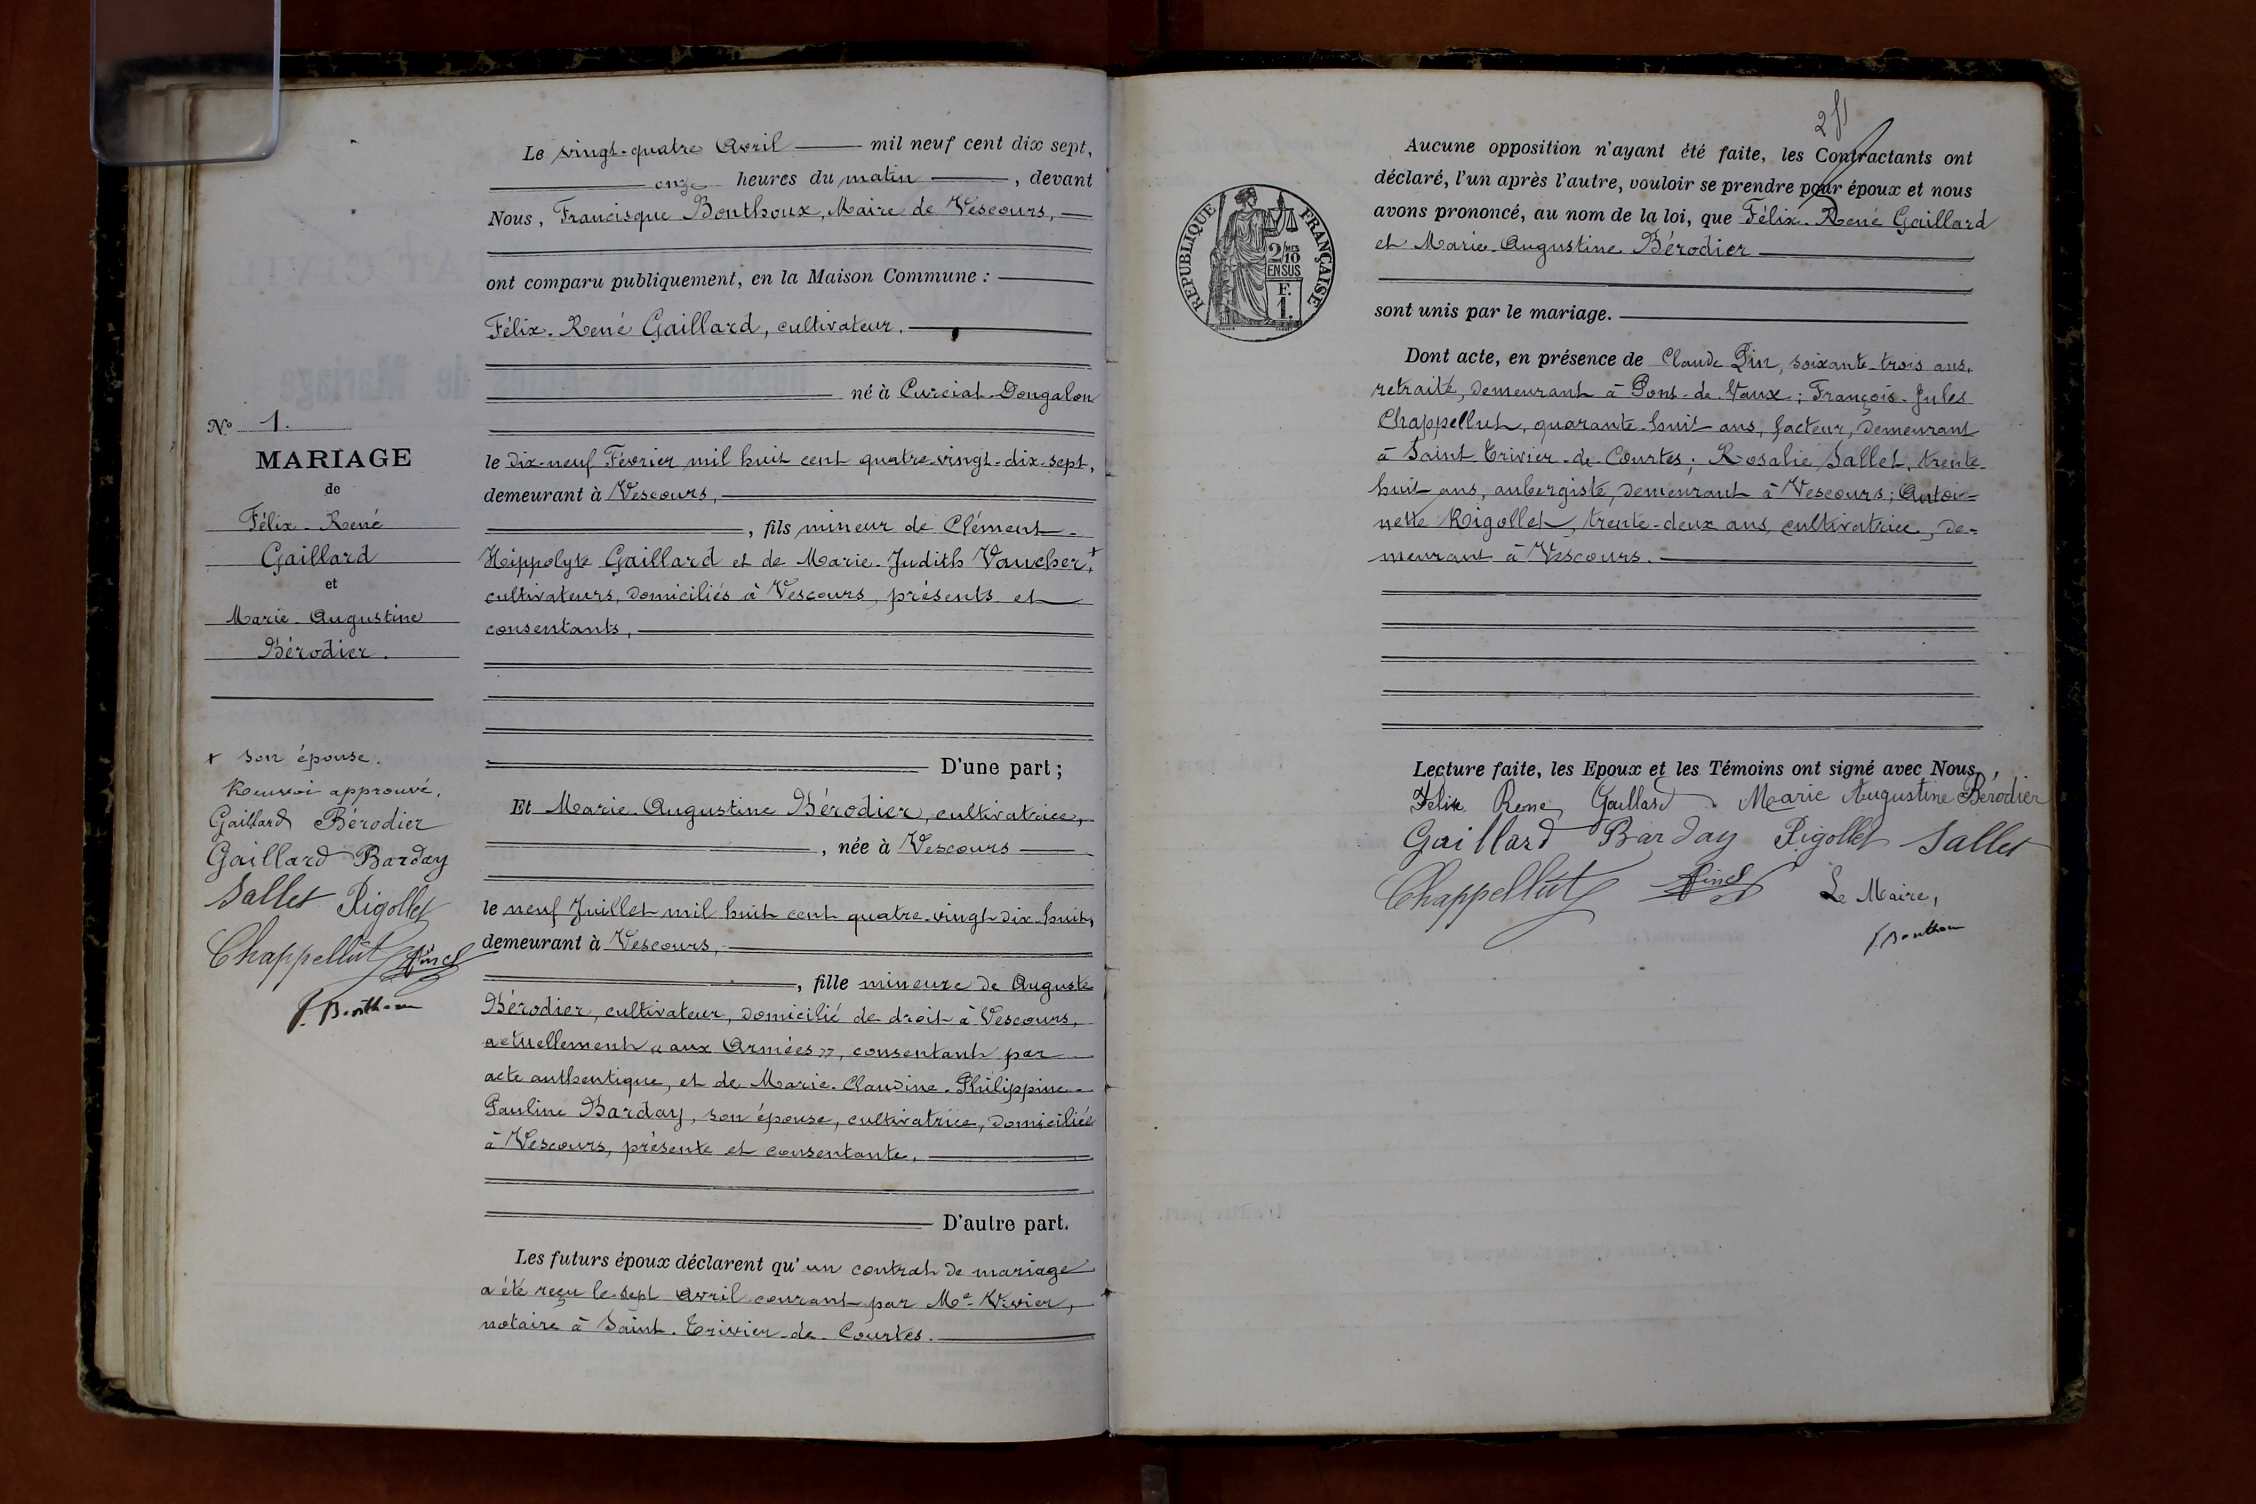 Le vingt-quatre Avril mil neuf cent dix sept,
onze heures du matin, devant
Nous, Francisque Bonthoux, Maire de Vescours,
ont comparu publiquement, en la Maison Commune :
Félix-René Gaillard, cultivateur,
né à Curciat-Dongalon
le dix-neuf Février mil huit cent quatre-vingt-dix-sept,
demeurant à Vescours,
, fils mineur de Clément-
Hippolyte Gaillard et de Marie-Judith Vaucher,+
cultivateurs, domiciliés à Vescours, présents et
consentants,
D'une part ;
Et Marie-Augustine Bérodier, cultivatrice,
, née à Vescours
le neuf Juillet mil huit cent quatre-vingt-dix-huit,
demeurant à Vescours,
, fille mineure de Auguste
Bérodier, cultivateur, domicilié de droit à Vescours,
actuellement « aux Armées », consentant par
acte authentique, et de Marie-Claudine-Philippine-
Pauline Barday, son épouse, cultivatrice, domiciliée
à Vescours, présente et consentante,
D'autre part.
Les futurs époux déclarent qu'un contrat de mariage
a été reçu le sept avril courant par Me Vivier,
notaire à Saint-Trivier-de-Courtes.
No 1.
MARIAGE
de
Félix-René
Gaillard
et
Marie-Augustine
Bérodier.
+ son épouse.
Renvoi approuvé.
Gaillard Bérodier
Gaillard Barday
Sallet Rigollet
Chappellut
F. Bonthoux
251
Aucune opposition n'ayant été faite, les Contractants ont
déclaré, l'un après l'autre, vouloir se prendre pour époux et nous
avons prononcé, au nom de la loi, que Félix-René Gaillard
et Marie-Augustine Bérodier
sont unis par le mariage.
RÉPUBLIQUE FRANÇAISE
2/10
EN SUS
F.
1.
Dont acte, en présence de Claude Pin, soixante-trois ans,
retraité, demeurant à Pont-de-Vaux ; François-Jules
Chappellut, quarante-huit ans, facteur, demeurant
à Saint Trivier-de-Courtes ; Rosalie Sallet, trente-
huit ans, aubergiste, demeurant à Vescours ; Antoi=
nette Rigollet, trente-deux ans, cultivatrice, de=
meurant à Vescours.
Lecture faite, les Epoux et les Témoins ont signé avec Nous,
Félix René Gaillard Marie Augustine Bérodier
Gaillard Barday Rigollet Sallet
Chappellut Le Maire,
F. Bonthoux